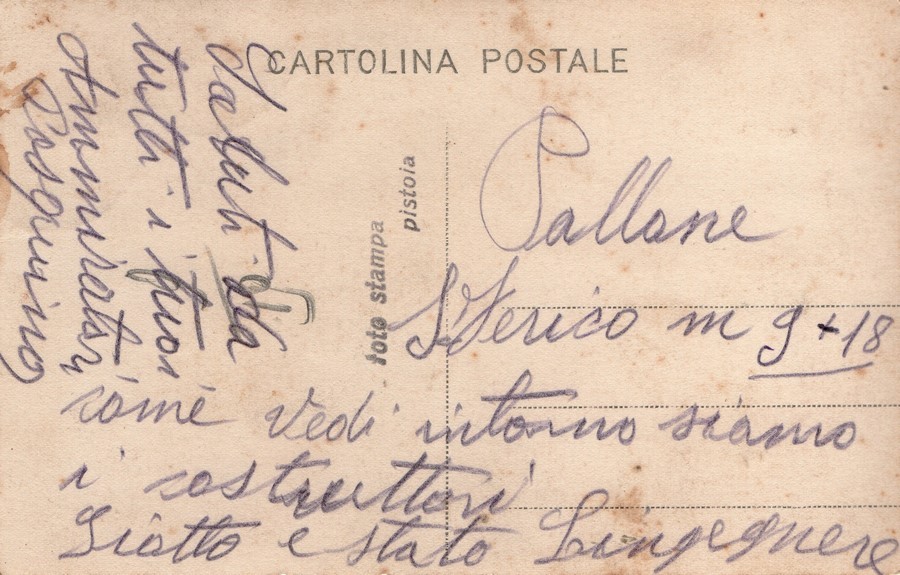 CARTOLINA POSTALE
foto stampa
pistoia
Pallone
Sferico m 9+18
come vedi intorno siamo
i costruttori
Giotto e stato Lingegnere
Saluti da
tutti i tuoi
Ammiratori
Pasquino